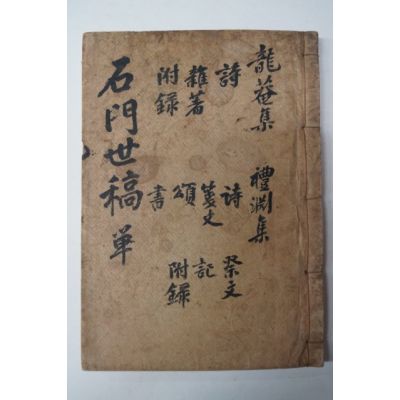 龍菴集 禮淵集
詩 詩 祭文
雜著 記
附錄 頌 附錄
書
石門世稿 單